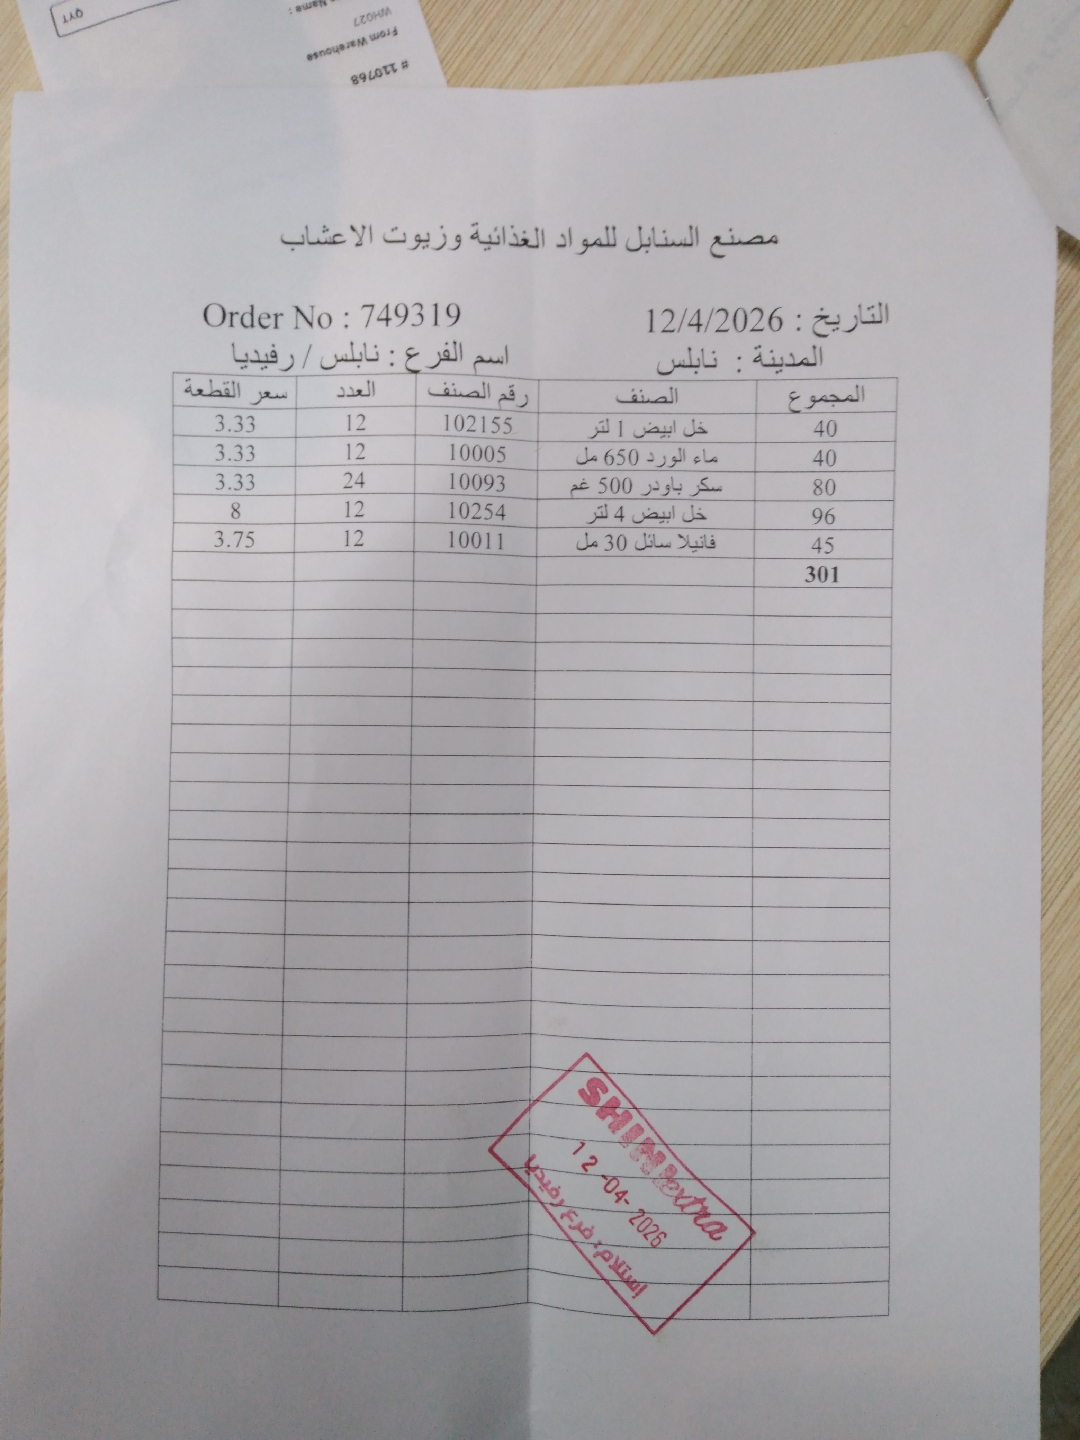 QTY
Name :
WH027
From Warehouse
# 110768
مصنع السنابل للمواد الغذائية وزيوت الاعشاب
التاريخ : 12/4/2026 Order No : 749319
المدينة : نابلس اسم الفرع : نابلس / رفيديا
المجموع الصنف رقم الصنف العدد سعر القطعة
40 خل ابيض 1 لتر 102155 12 3.33
40 ماء الورد 650 مل 10005 12 3.33
80 سكر باودر 500 غم 10093 24 3.33
96 خل ابيض 4 لتر 10254 12 8
45 فانيلا سائل 30 مل 10011 12 3.75
301
SHINI extra
12-04-2026
إستلام: فرع رفيديا